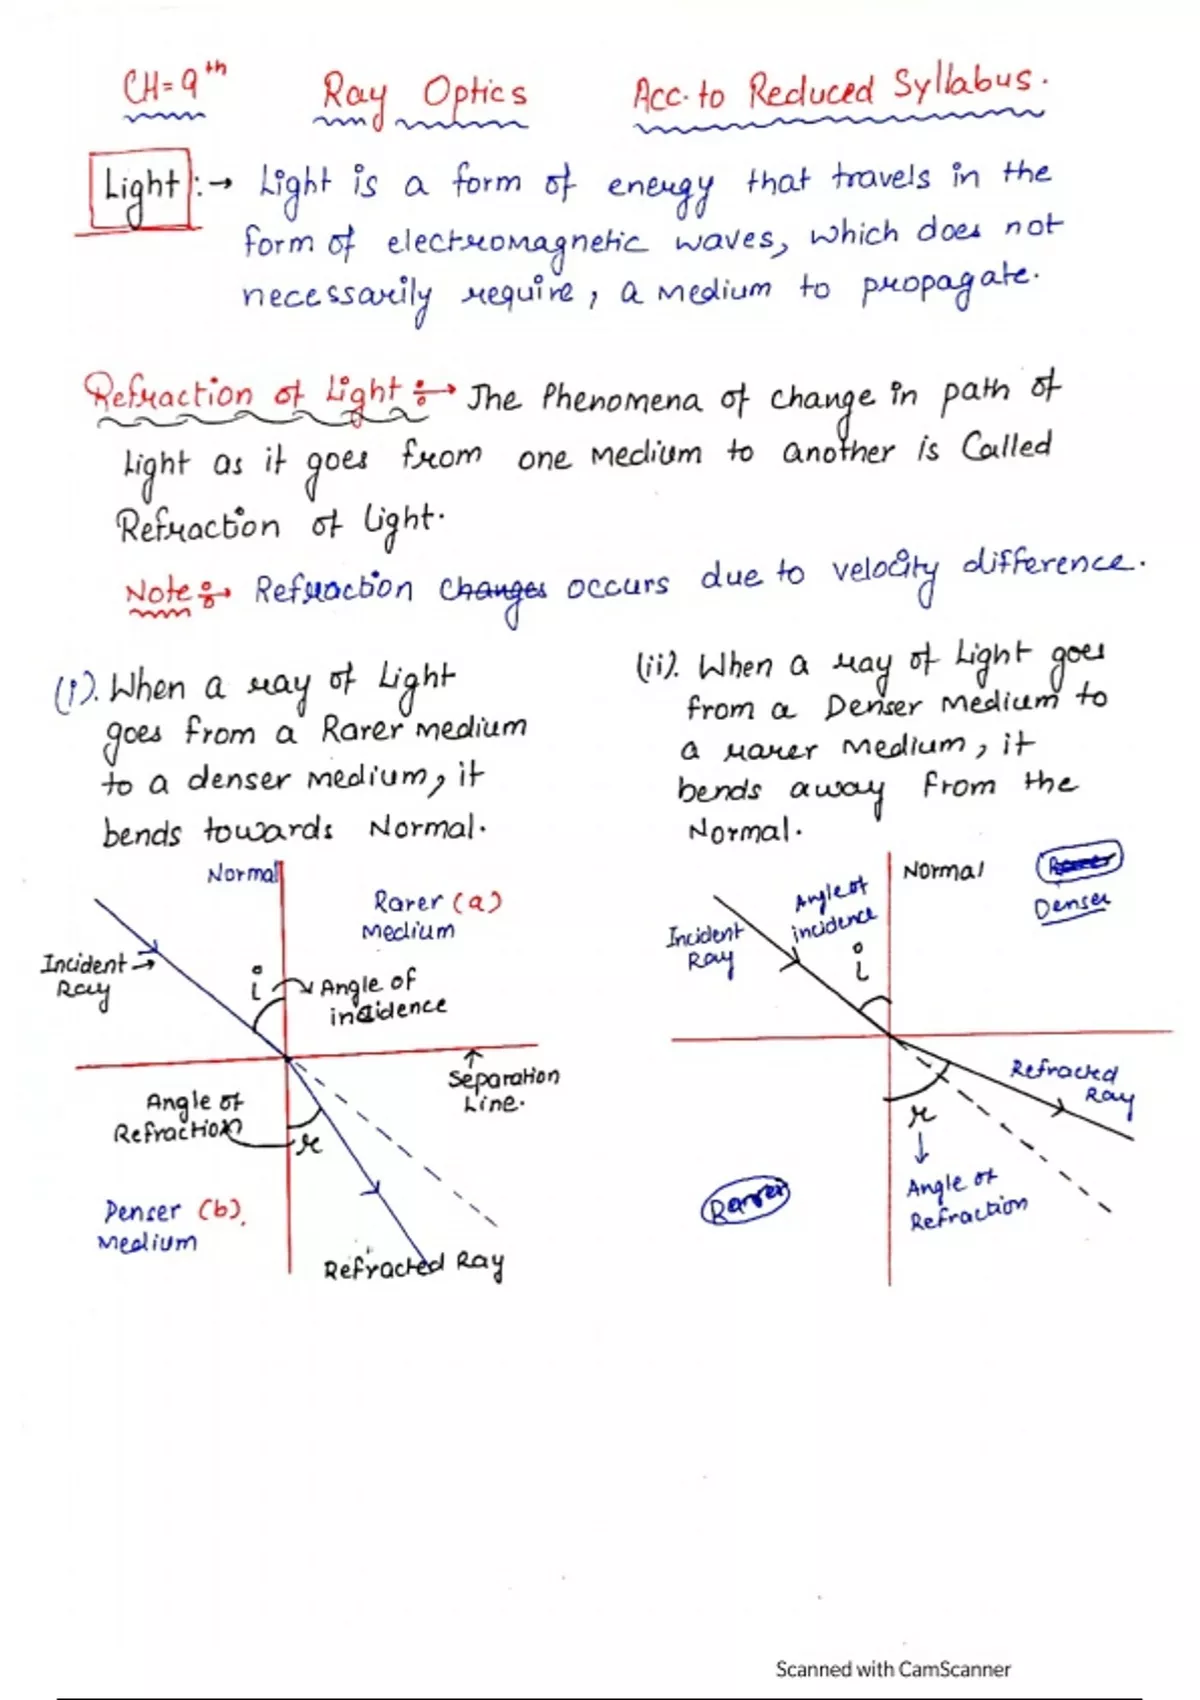 CH=9th Ray Optics Acc. to Reduced Syllabus.
Light :→ Light is a form of energy that travels in the
form of electromagnetic waves, which does not
necessarily require, a medium to propagate.
Refraction of Light :→ The Phenomena of change in path of
light as it goes from one medium to another is Called
Refraction of light.
Note :→ Refraction changes occurs due to velocity difference.
(i). When a ray of Light
goes from a Rarer medium
to a denser medium, it
bends towards Normal.
(ii). When a ray of Light goes
from a Denser Medium to
a rarer medium, it
bends away from the
Normal.
Normal
Rarer (a)
Medium
Incident →
Ray
i
Angle of
incidence
Separation
Line.
Angle of
Refraction
r
Denser (b).
Medium
Refracted Ray
Normal
Rarer
Denser
Angle of
incidence
i
Incident
Ray
Refracted
Ray
r
Angle of
Refraction
Rarer
Scanned with CamScanner